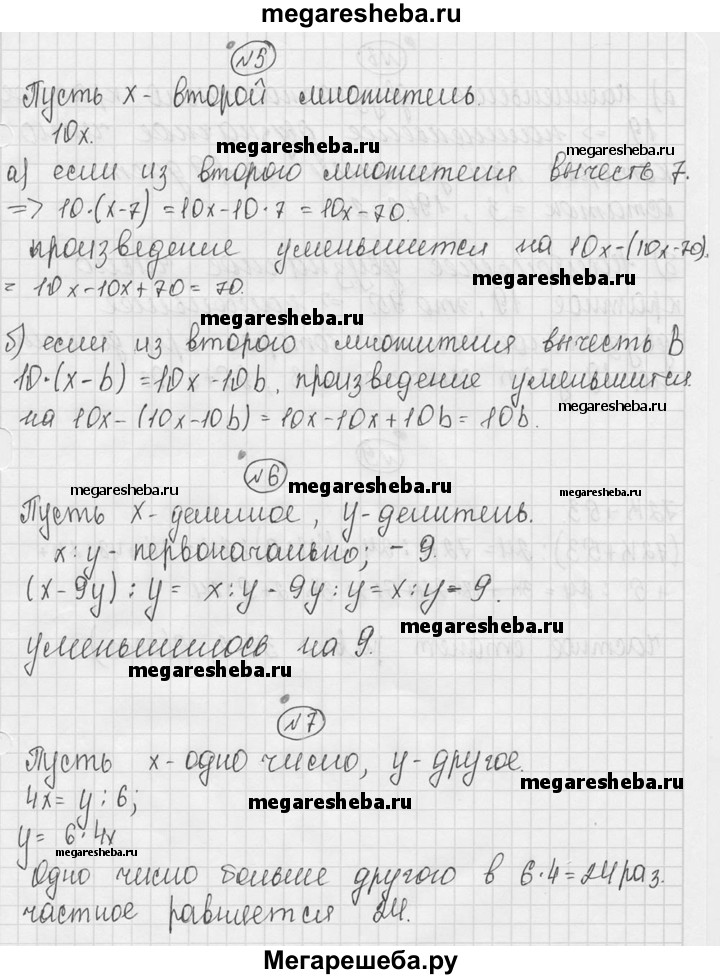 megaresheba.ru
№5
Пусть x - второй множитель.
10x.
megaresheba.ru
megaresheba.ru
а) если из второго множителя вычесть 7.
=> 10·(x-7) = 10x-10·7 = 10x-70.
произведение уменьшится на 10x-(10x-70).
megaresheba.ru
= 10x-10x+70 = 70.
megaresheba.ru
б) если из второго множителя вычесть b
10·(x-b) = 10x-10b. произведение уменьшится
megaresheba.ru
на 10x-(10x-10b) = 10x-10x+10b = 10b.
№6
megaresheba.ru
megaresheba.ru
megaresheba.ru
Пусть x-делимое, y-делитель.
x:y - первоначально; - 9.
(x-9y) : y = x:y - 9y:y = x:y - 9.
megaresheba.ru
уменьшилось на 9.
megaresheba.ru
№7
Пусть x-одно число, y-другое.
megaresheba.ru
4x = y : 6;
megaresheba.ru
y = 6·4x
megaresheba.ru
Одно число больше другого в 6·4=24 раз.
частное равняется 24.
Мегарешеба.ру